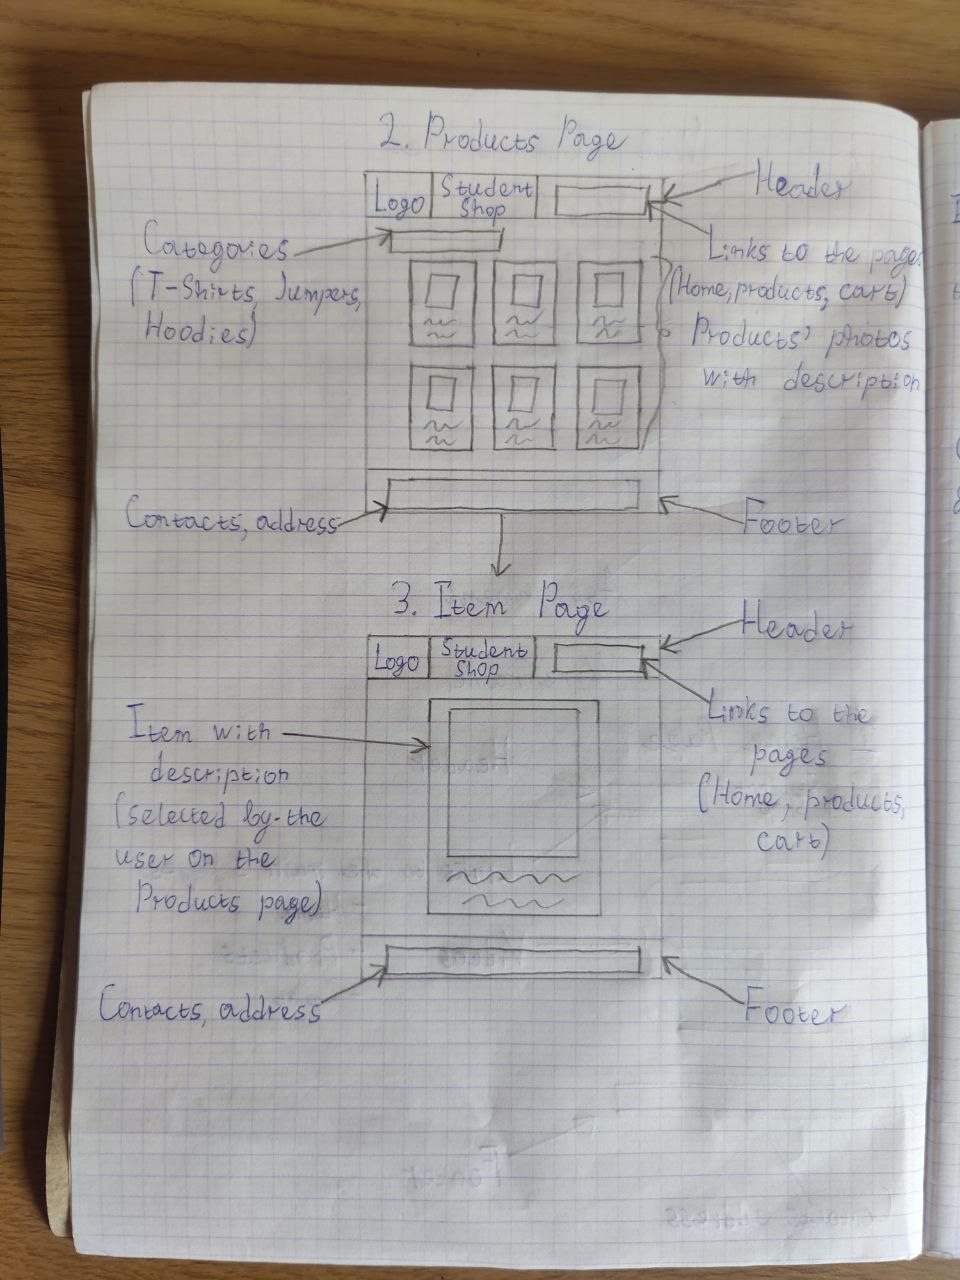 2. Products Page
Logo
Student
Shop
Header
Categories
(T-Shirts, Jumpers,
Hoodies)
Links to the pages
(Home, products, cart)
Products' photos
with description
Contacts, address
Footer
3. Item Page
Logo
Student
Shop
Header
Links to the
pages
(Home, products,
cart)
Item with
description
(selected by the
user on the
Products page)
Contacts, address
Footer